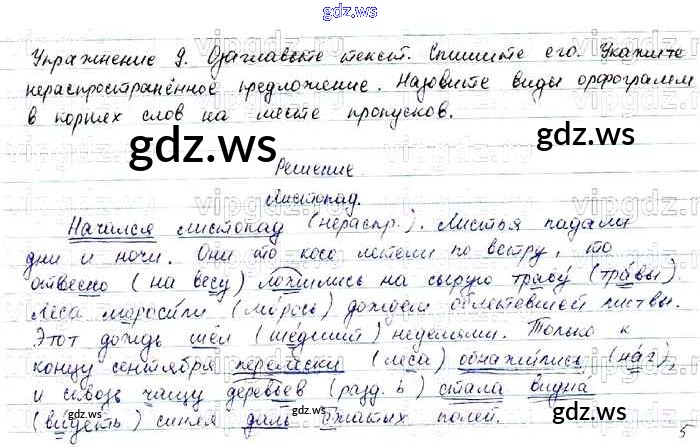 gdz.ws
Упражнение 9. Озаглавьте текст. Спишите его. Укажите
нераспространённое предложение. Назовите виды орфограмм
в корнях слов на месте пропусков.
gdz.ws
gdz.ws
Решение.
Листопад.
Начался листопад (нераспр.). Листья падали
дни и ночи. Они то косо летели по ветру, то
отвесно (на весу) ложились на сырую траву (травы).
Леса моросили (морось) дождём облетевшей листвы.
Этот дождь шёл (шедший) неделями. Только к
концу сентября перелески (леса) обнажились (наг),
и сквозь чащу деревьев (разд. ь) стала видна
(видеть) синяя даль сжатых полей.
gdz.ws
gdz.ws
5